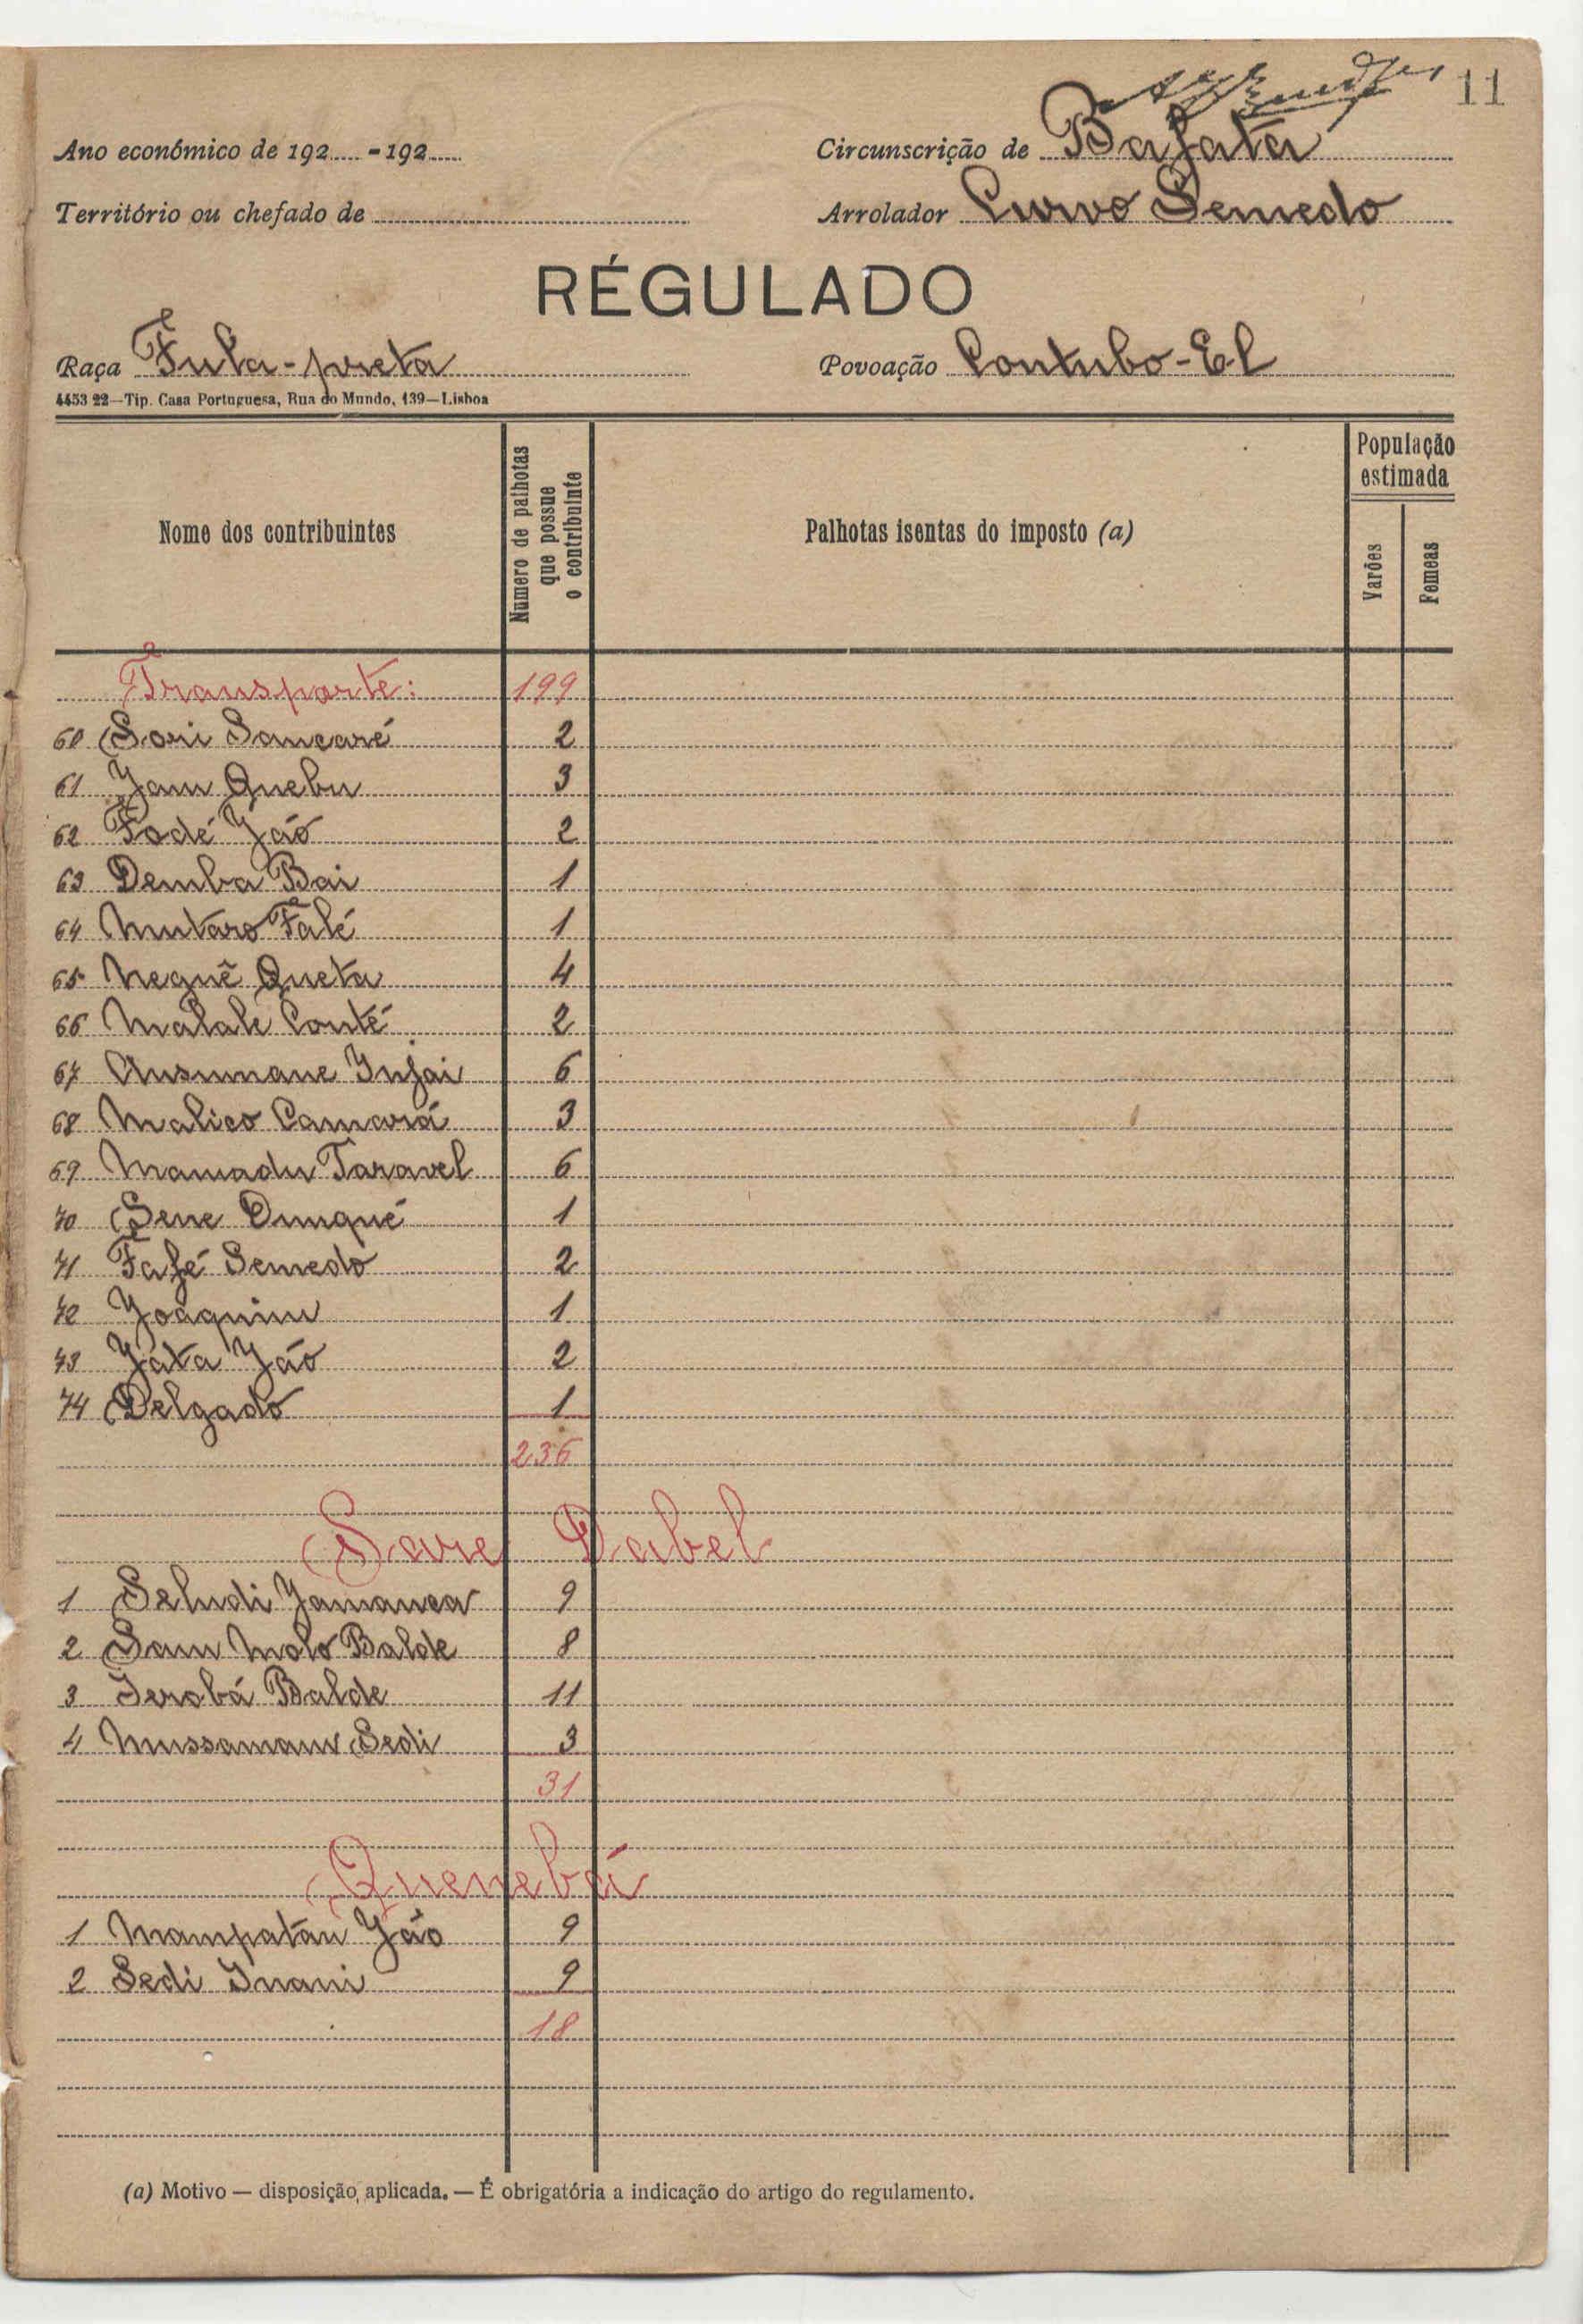 11
Ano económico de 192..... - 192.....
Circunscrição de Bafatá
Território ou chefado de
Arrolador Curvo Semedo
RÉGULADO
Raça Fula-preta
Povoação Contubo-El
4453 22—Tip. Casa Portuguesa, Rua do Mundo, 139—Lisboa
Nome dos contribuintes
Número de palhotas que possue o contribuinte
Palhotas isentas do imposto (a)
População estimada
Varões
Femeas
Transporte: 199
60 Sori Sancaré 2
61 Jam Quebu 3
62 Fodé Jáo 2
63 Demba Bai 1
64 Mutaro Falé 1
65 Nequê Queta 4
66 Malale Conté 2
67 Ansumane Injai 6
68 Malico Camará 3
69 Mamadu Taravel 6
70 Sene Dunqué 1
71 Fafé Semedo 2
72 Joaquim 1
73 Jata Jáo 2
74 Delgado 1
236
Sare Dabel
1 Seludi Jamanca 9
2 Sam Molo Balde 8
3 Jerobá Balde 11
4 Mussamane Sedi 3
31
Quenebá
1 Mampatan Jáo 9
2 Sedi Inani 9
18
(a) Motivo — disposição aplicada. — É obrigatória a indicação do artigo do regulamento.